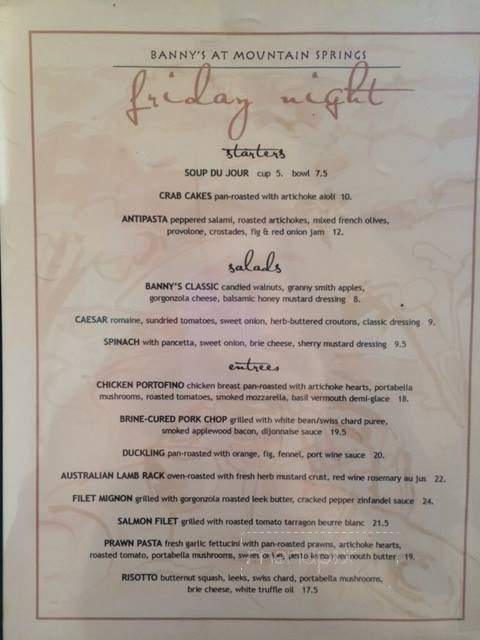 BANNY'S AT MOUNTAIN SPRINGS
friday night
starters
SOUP DU JOUR cup 5. bowl 7.5
CRAB CAKES pan-roasted with artichoke aioli 10.
ANTIPASTA peppered salami, roasted artichokes, mixed french olives,
provolone, crostades, fig & red onion jam 12.
salads
BANNY'S CLASSIC candied walnuts, granny smith apples,
gorgonzola cheese, balsamic honey mustard dressing 8.
CAESAR romaine, sundried tomatoes, sweet onion, herb-buttered croutons, classic dressing 9.
SPINACH with pancetta, sweet onion, brie cheese, sherry mustard dressing 9.5
entrees
CHICKEN PORTOFINO chicken breast pan-roasted with artichoke hearts, portabella
mushrooms, roasted tomatoes, smoked mozzarella, basil vermouth demi-glace 18.
BRINE-CURED PORK CHOP grilled with white bean/swiss chard puree,
smoked applewood bacon, dijonnaise sauce 19.5
DUCKLING pan-roasted with orange, fig, fennel, port wine sauce 20.
AUSTRALIAN LAMB RACK oven-roasted with fresh herb mustard crust, red wine rosemary au jus 22.
FILET MIGNON grilled with gorgonzola roasted leek butter, cracked pepper zinfandel sauce 24.
SALMON FILET grilled with roasted tomato tarragon beurre blanc 21.5
PRAWN PASTA fresh garlic fettucini with pan-roasted prawns, artichoke hearts,
roasted tomato, portabella mushrooms, sweet onion, pesto lemon vermouth butter 19.
RISOTTO butternut squash, leeks, swiss chard, portabella mushrooms,
brie cheese, white truffle oil 17.5